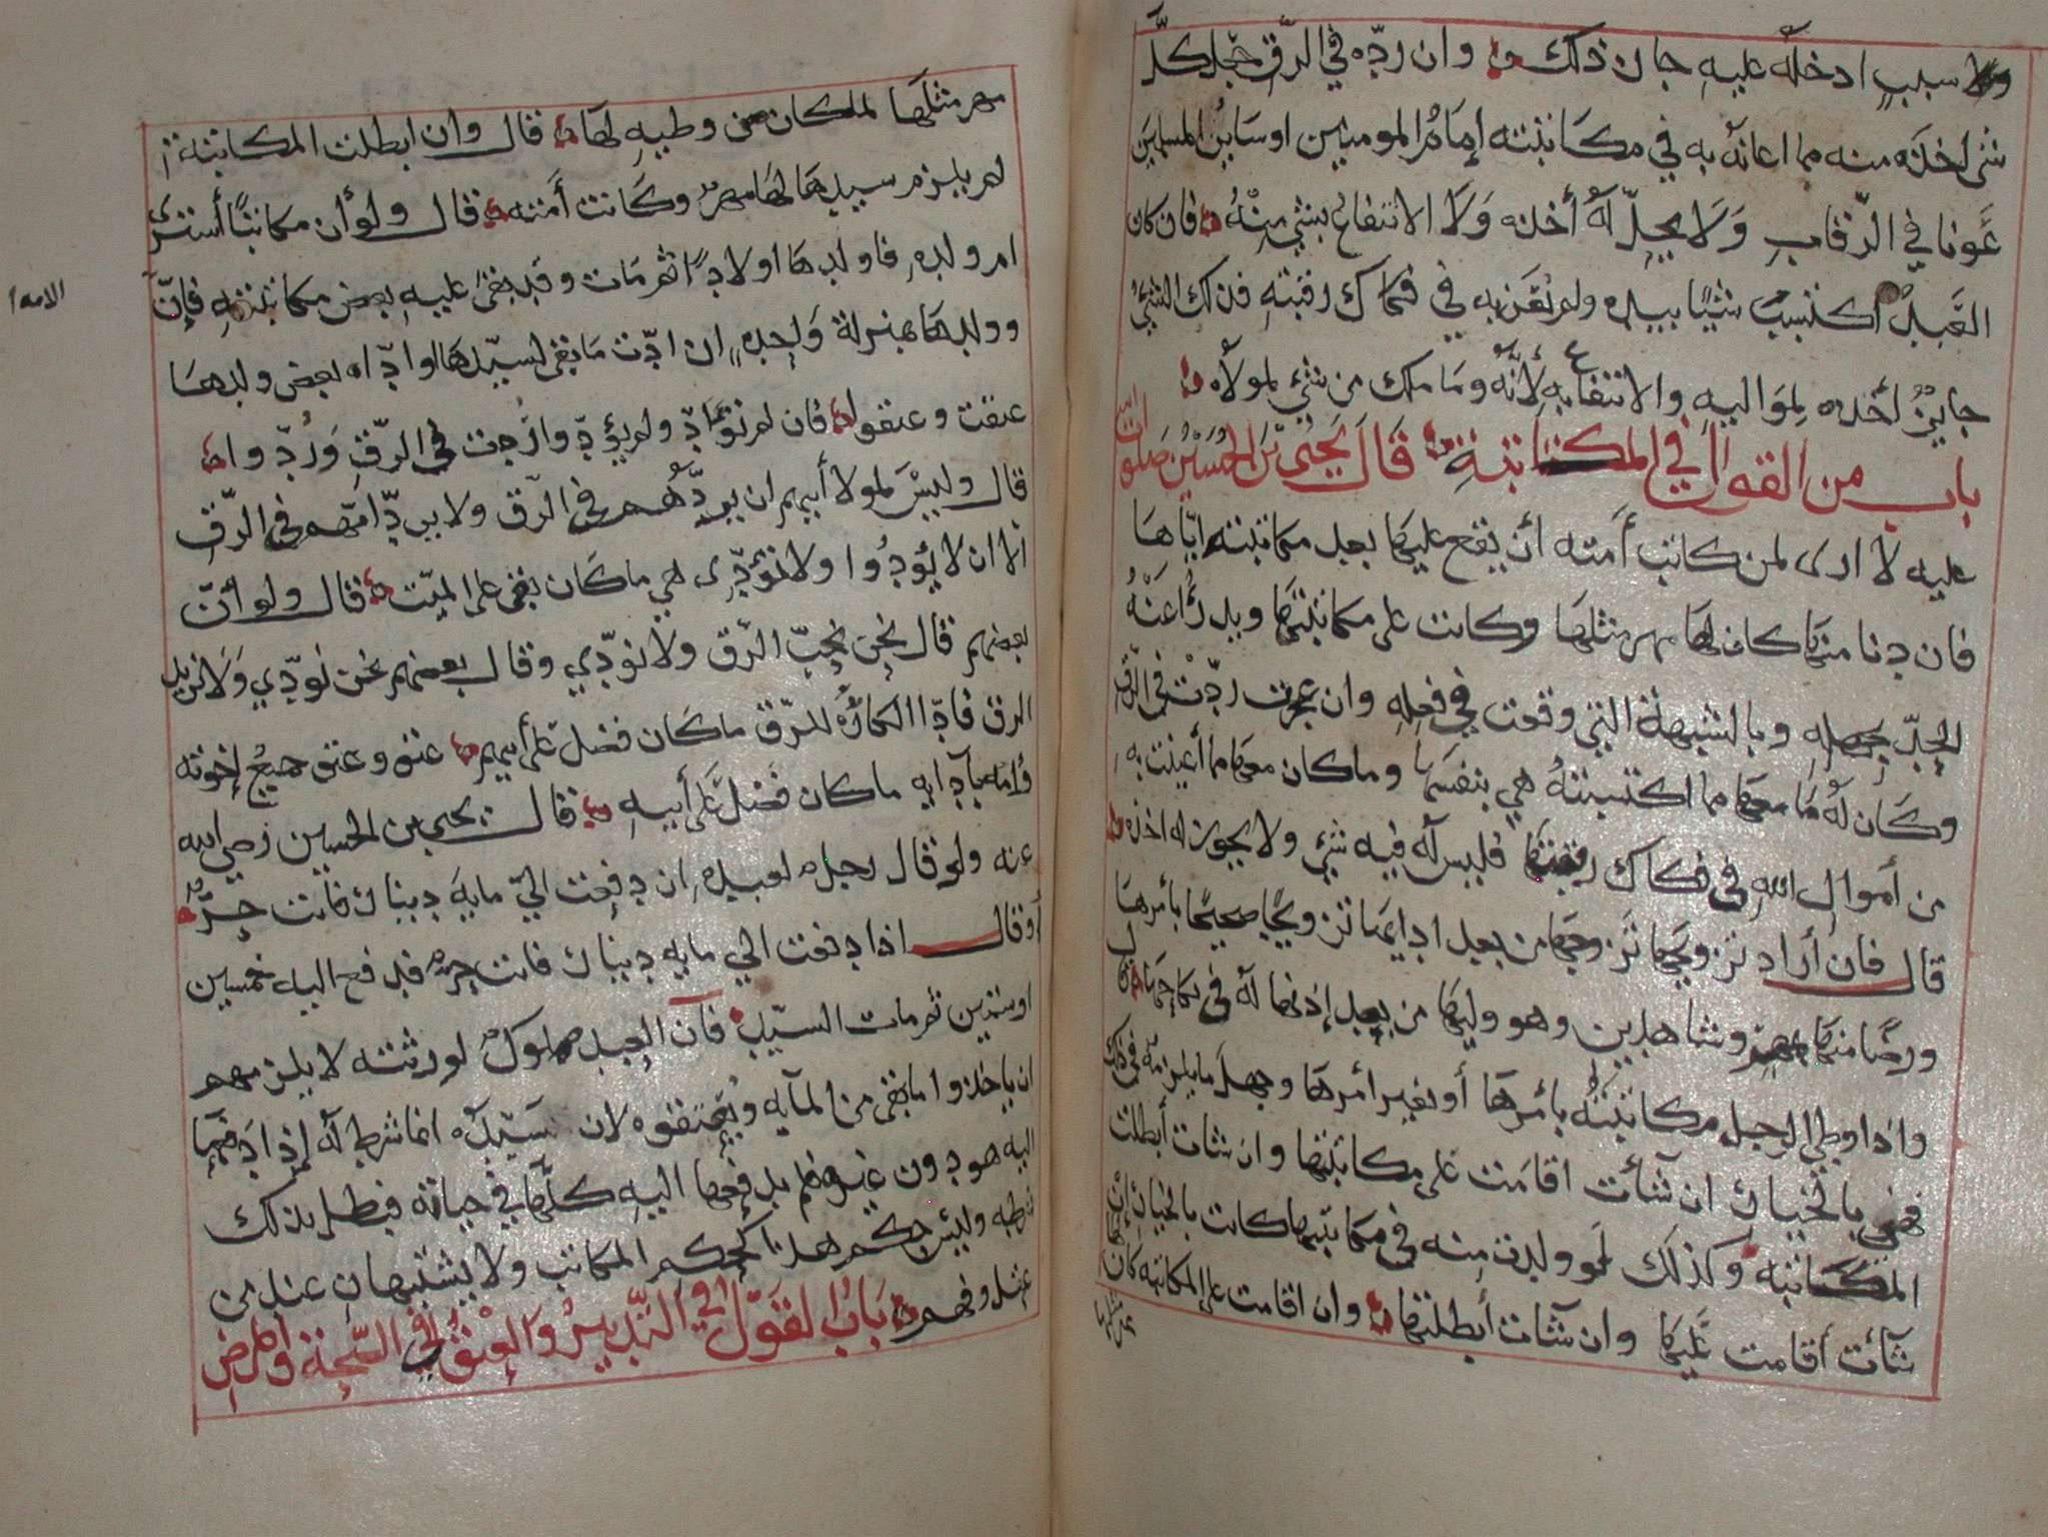 ولا سبب ادخله عليه جاز ذلك وان رده في الرق جعل كل
شي اخذه منه مما اعانه به في مكاتبته إمام المومنين او سائر المسلمين
عونا في الرقاب ولا يحل له أخذه ولا الانتفاع بشي منه فان كان
العبد اكتسب شيا بيده ولم نقر به في فكاك رقبته فذلك الشي
جايز أخذه لمواليه والانتفاع به لأنه وما ملك من شي لمولاه
باب من القول في المكاتبة قال يحيى بن الحسين صلوات الله
عليه لا ارى لمن كاتب أمته أن يقع عليها بعد مكاتبته اياها
فان دنا منها كان لها مهر مثلها وكانت على مكاتبتها ويدرأ عنه
الحد بجهله وبالشبهة التي وقعت في فعله وان عجزت ردت في الرق
وكان له ما معها مما اكتسبته هي بنفسها وما كان معها مما أعينت به
من أموال الله في فكاك رقبتها فليس له فيه شي ولا يجوز له اخذه
قال فان أراد تزويجها تزوجها من بعد ادايها تزويجا صحيحا بأمرها
ورضا منها بمهر وشاهدين وهو وليها من بعد إذنها له في نكاحها
واذا وطي الرجل مكاتبته بأمرها أو بغير أمرها وجهل ما يلزمه في ذلك
فهي بالخيار ان شأت اقامت على مكاتبتها وان شات أبطلت
المكاتبة وكذلك لو ولدت منه في مكاتبتها كانت بالخيار إن
شأت أقامت عليها وان شأت أبطلتها وان اقامت على المكاتبه كان لها
مهر مثلها لمكان من وطيه لها قال وان ابطلت المكاتبة
لم يلزم سيدها لها مهر وكانت أمته قال ولو أن مكاتبا أشترى
ام ولده فاولدها اولادا ثم مات وقد بقى عليه بعض مكاتبته فإن
الامه
وولدها بمنزلة واحده ان ادت ما بقى لسيدها او اداه بعض ولدها
عتقت وعتقوا فان لم تؤد ولم يؤدوا رجعت في الرق وردوا
قال وليس لمولا أبيهم ان يردهم في الرق ولا يرد امهم في الرق
الا ان لا يؤدوا ولا تؤدي هي ما كان بقى على الميت قال ولو أن
بعضهم قال نحن نحب الرق ولا نودي وقال بعضهم نحن نودي ولا نريد
الرق فادا الكاره للرق ما كان فضل على أبيهم عتق وعتق جميع إخوته
وامه بآدايه ما كان فضل على أبيه قال يحيى بن الحسين رضي الله
عنه ولو قال رجل لعبده ان دفعت الي ماية دينار فانت حر
أو قال اذا دفعت الي مايه دينار فانت حر فدفع اليه خمسين
او ستين ثم مات السيد فآن العبد مملوك لورثته لا يلزمهم
ان ياخذوا ما بقى من المآيه ويعتقوه لان سيده انما شرط له إذا دفعها
اليه هو دون غيره فلم يدفعها اليه كلها في حياته فبطل بذلك
شرطه وليس حكم هذا كحكم المكاتب ولا يشتبهان عند من
عقل وفهم باب القول في التدبير والعتق في الصحة والمرض